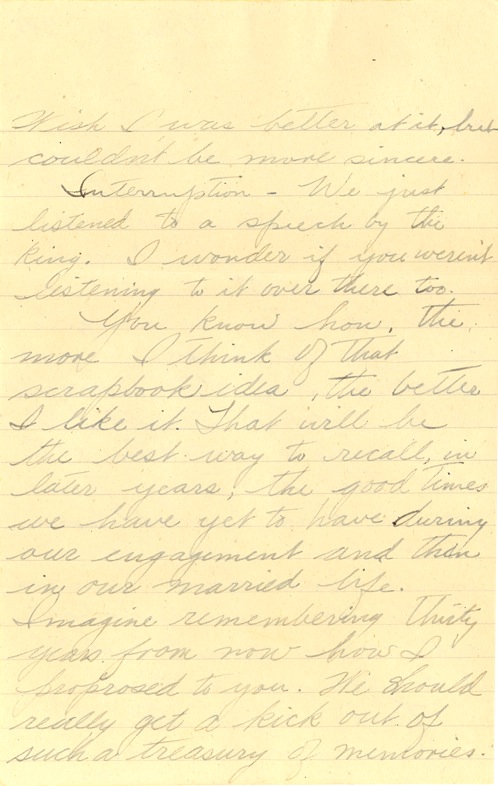 Wish I was better at it, but
couldn't be more sincere.
Interruption - We just
listened to a speech by the
king. I wonder if you weren't
listening to it over there too.
You know hon, the
more I think of that
scrapbook idea, the better
I like it. That will be
the best way to recall, in
later years, the good times
we have yet to have during
our engagement and then
in our married life.
Imagine remembering thirty
years from now how I
proprosed to you. We should
really get a kick out of
such a treasury of memories.